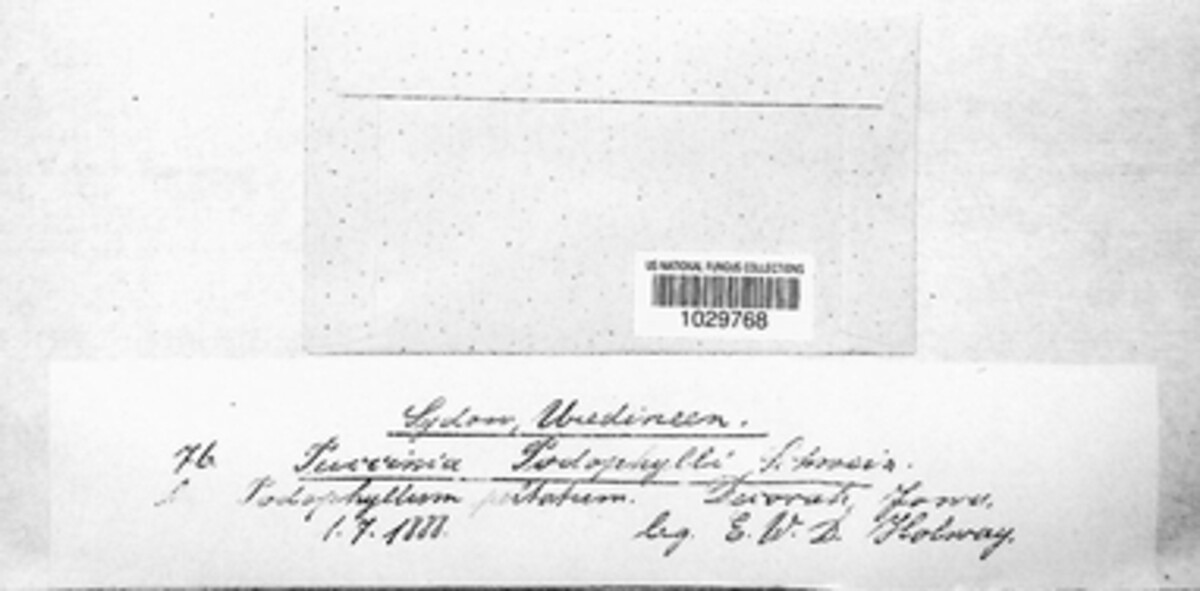 US NATIONAL FUNGUS COLLECTIONS
1029768
Sydow, Uredineen.
76 Puccinia Podophylli Schwein.
Podophyllum peltatum. Decorah, Iowa.
1.7.1888. leg. E. W. D. Holway.